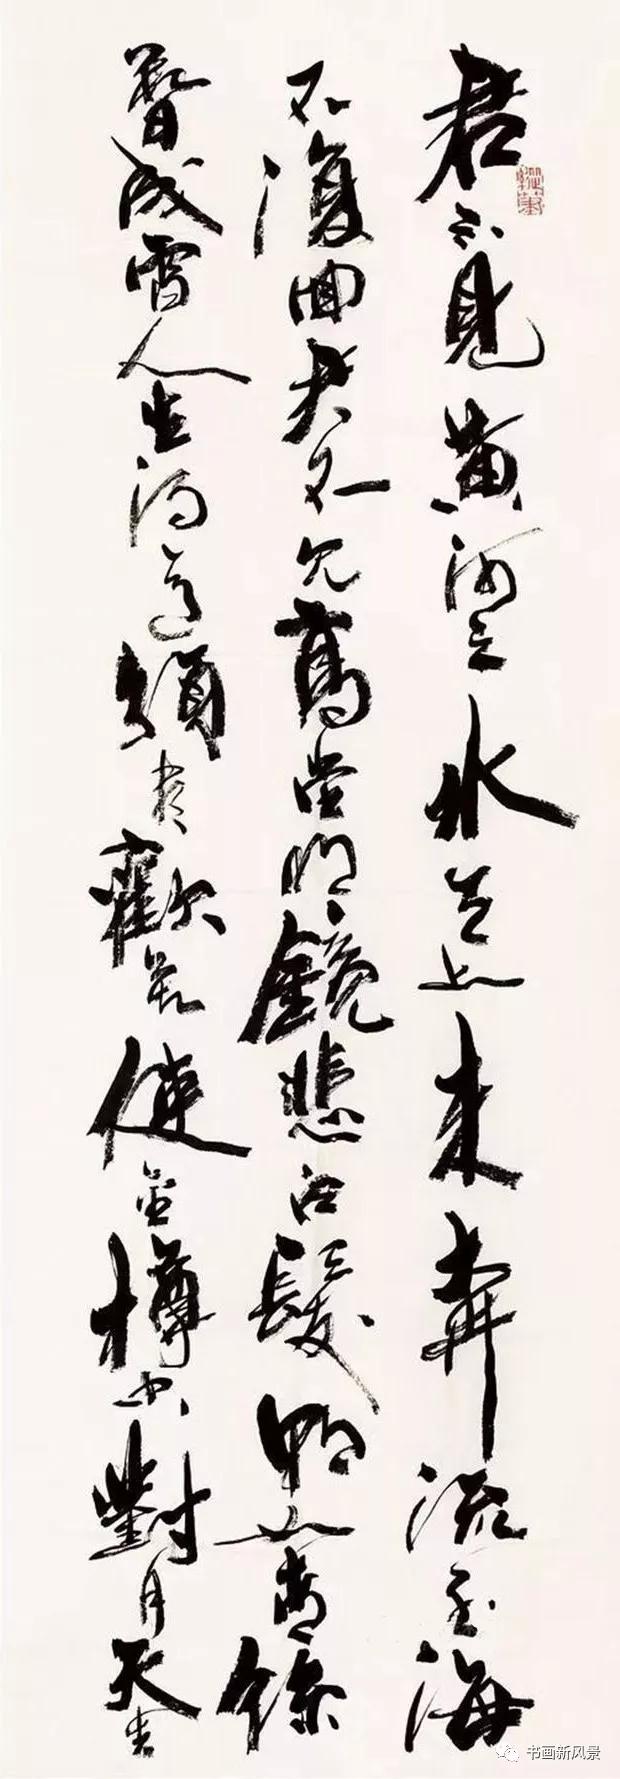 君不見黄河之水天上来奔流至海
不復回君不見高堂明鏡悲白髮朝如青絲
暮成雪人生得意須盡歡莫使金樽空對月天生
书画新风景